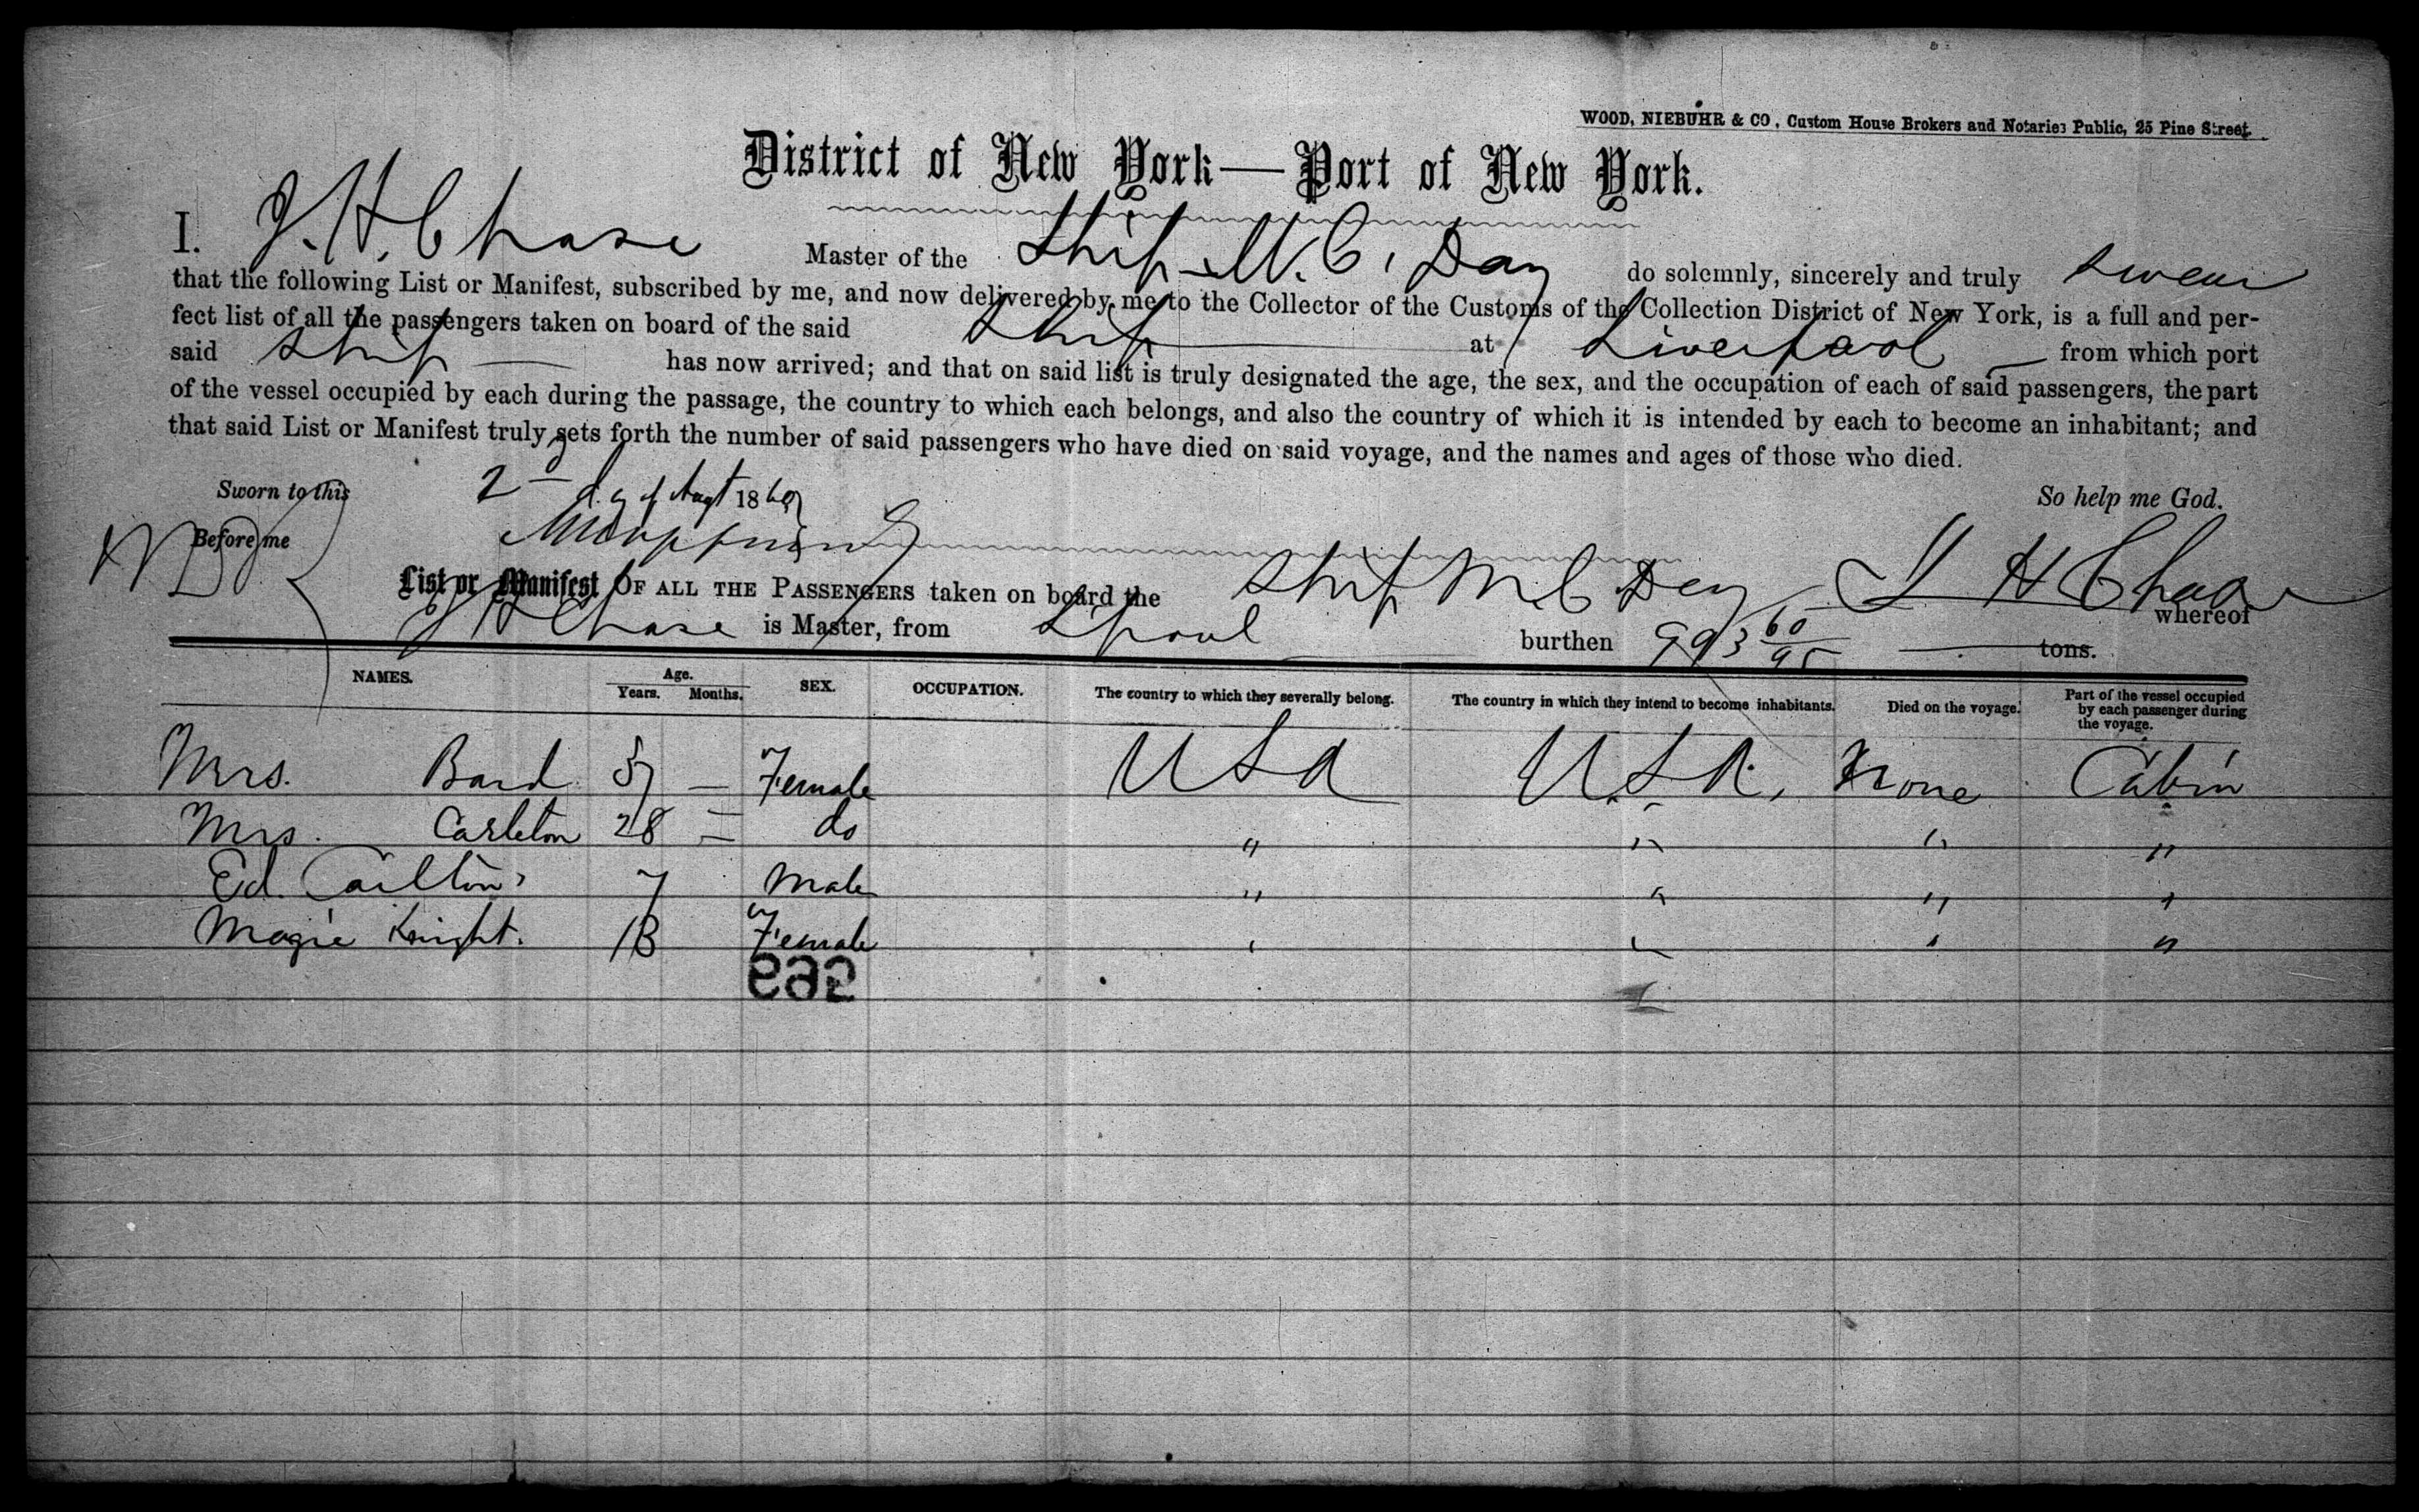 WOOD, NIEBUHR & CO, Custom House Brokers and Notaries Public, 25 Pine Street.
District of New York—Port of New York.
I. J. H. Chase Master of the Ship M. C. Day do solemnly, sincerely and truly swear
that the following List or Manifest, subscribed by me, and now delivered by me to the Collector of the Customs of the Collection District of New York, is a full and per-
fect list of all the passengers taken on board of the said Ship at Liverpool from which port
said Ship has now arrived; and that on said list is truly designated the age, the sex, and the occupation of each of said passengers, the part
of the vessel occupied by each during the passage, the country to which each belongs, and also the country of which it is intended by each to become an inhabitant; and
that said List or Manifest truly sets forth the number of said passengers who have died on said voyage, and the names and ages of those who died.
Sworn to this 2 day of Augt 186 So help me God.
Before me
J H Chase
List or Manifest OF ALL THE PASSENGERS taken on board the Ship M C Day whereof
J H Chase is Master, from Lpool burthen 993 60/95 tons.
NAMES. Age. Years. Months. SEX. OCCUPATION. The country to which they severally belong. The country in which they intend to become inhabitants. Died on the voyage. Part of the vessel occupied by each passenger during the voyage.
Mrs. Bard — Female USA U.S.A. None Cabin
Mrs. Carleton 28 — do " " " "
Ed. Carlton 7 Male " " " "
Magie Knight. 18 Female " " " "